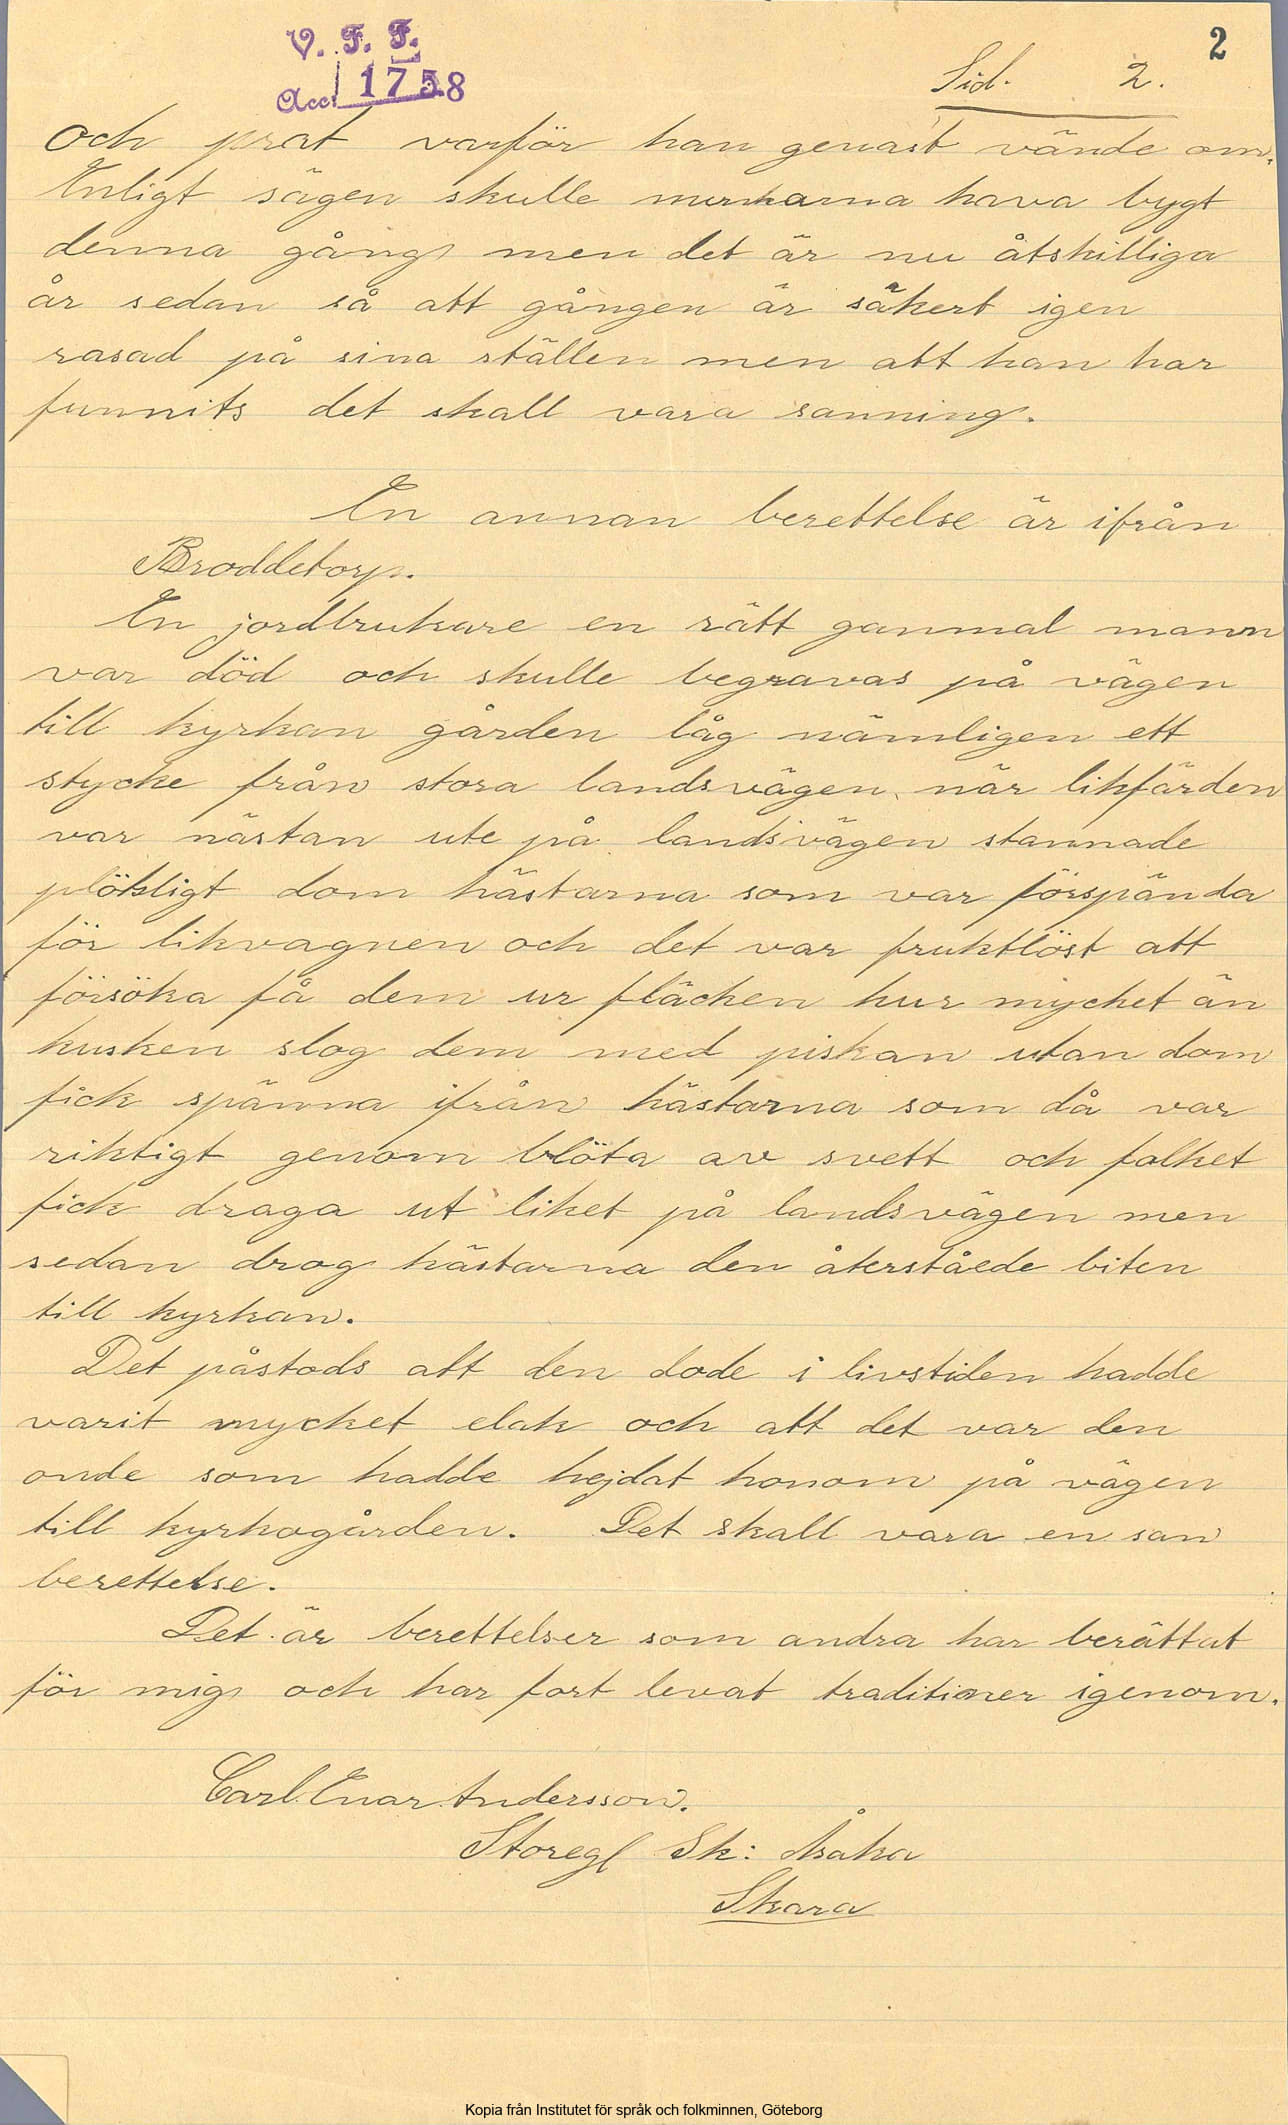 V. F. F.
2
Acc. 1758
Sid. 2.
och prat varför han genast vände om.
Enligt sägen skulle munkarna hava bygt
denna gång, men det är nu åtskilliga
år sedan så att gången är säkert igen
rasad på sina ställen men att han har
funnits det skall vara sanning.
En annan berettelse är ifrån
Broddetorp.
En jordbrukare en rätt gammal mann
var död och skulle begravas på vägen
till kyrkan gården låg nämligen ett
stycke från stora landsvägen, när likfärden
var nästan ute på landsvägen stannade
plötsligt dom hästarna som var förspända
för likvagnen och det var fruktlöst att
försöka få dem ur fläcken hur mycket än
kusken slog dem med piskan utan dom
fick spänna ifrån hästarna som då var
riktigt genom blöta av svett och folket
fick draga ut liket på landsvägen men
sedan drog hästarna den återståede biten
till kyrkan.
Det påstods att den dode i livstiden hadde
varit mycket elak och att det var den
onde som hadde hejdat honom på vägen
till kyrkogården. Det skall vara en san
berettelse.
Det är berettelser som andra har berättat
för mig, och har fort levat traditioner igenom.
Carl. Enar. Andersson.
Storegl Sk: Åsaka
Skara
Kopia från Institutet för språk och folkminnen, Göteborg